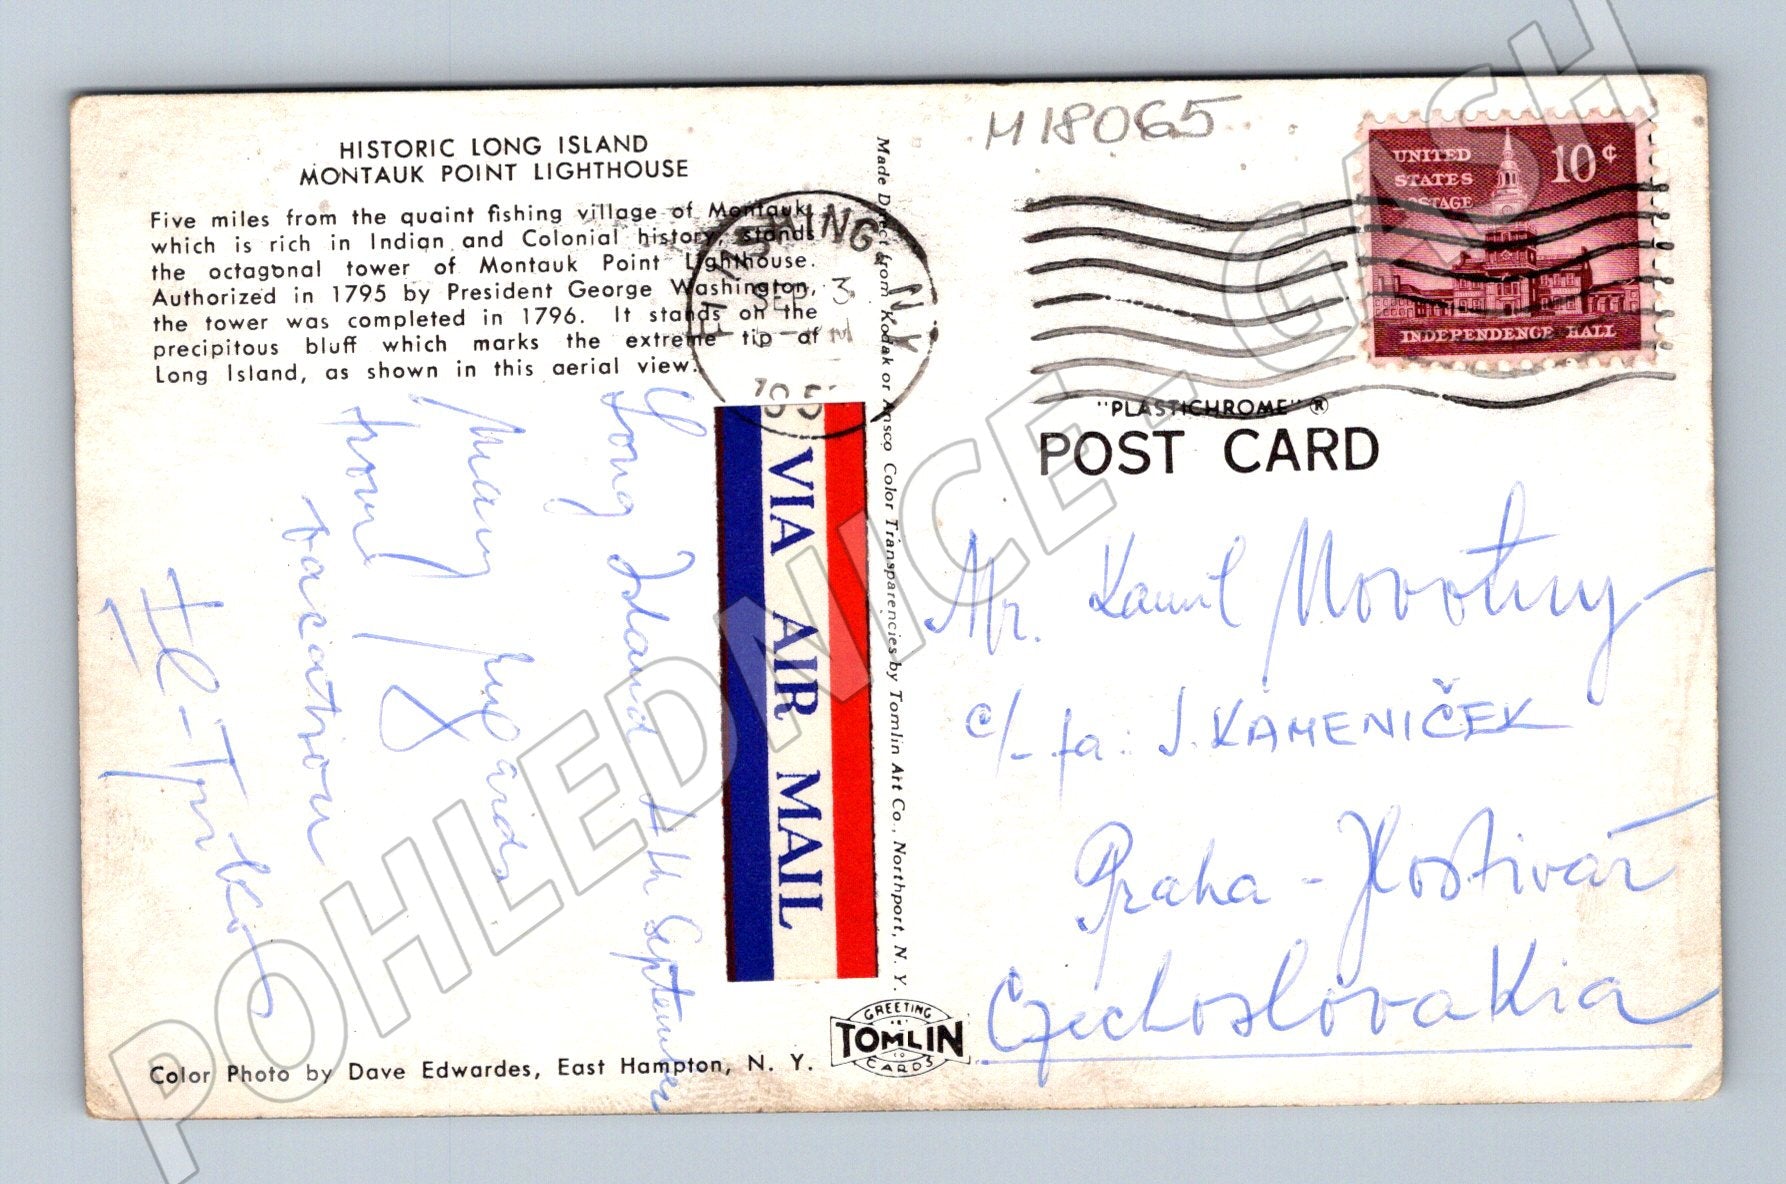 HISTORIC LONG ISLAND
MONTAUK POINT LIGHTHOUSE
Five miles from the quaint fishing village of Montauk,
which is rich in Indian and Colonial history, stands
the octagonal tower of Montauk Point Lighthouse.
Authorized in 1795 by President George Washington,
the tower was completed in 1796. It stands on the
precipitous bluff which marks the extreme tip of
Long Island, as shown in this aerial view.
Long Island 4th September
Many
from
vacation
Color Photo by Dave Edwardes, East Hampton, N. Y.
FLUSHING N.Y.
SEP 3
VIA AIR MAIL
Made Direct from Kodak or Ansco Color Transparencies by Tomlin Art Co., Northport, N. Y.
GREETING
TOMLIN
CARDS
M18065
UNITED
STATES
POSTAGE
10¢
INDEPENDENCE HALL
"PLASTICHROME" ®
POST CARD
Mr. Kamil Novotny
c/- fa: J. KAMENIČEK
Praha - Hostivař
Czechoslovakia
POHLEDNICE - GASH